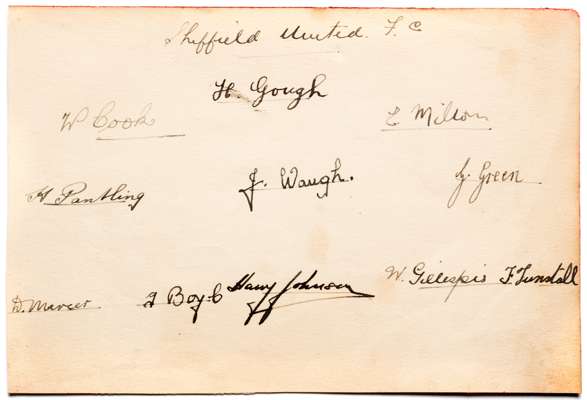 Sheffield United. F. C
H. Gough
W Cook
E Milton
H Pantling
J. Waugh.
G. Green
D. Mercer
Harry Johnson
W. Gillespie
F Tunstall